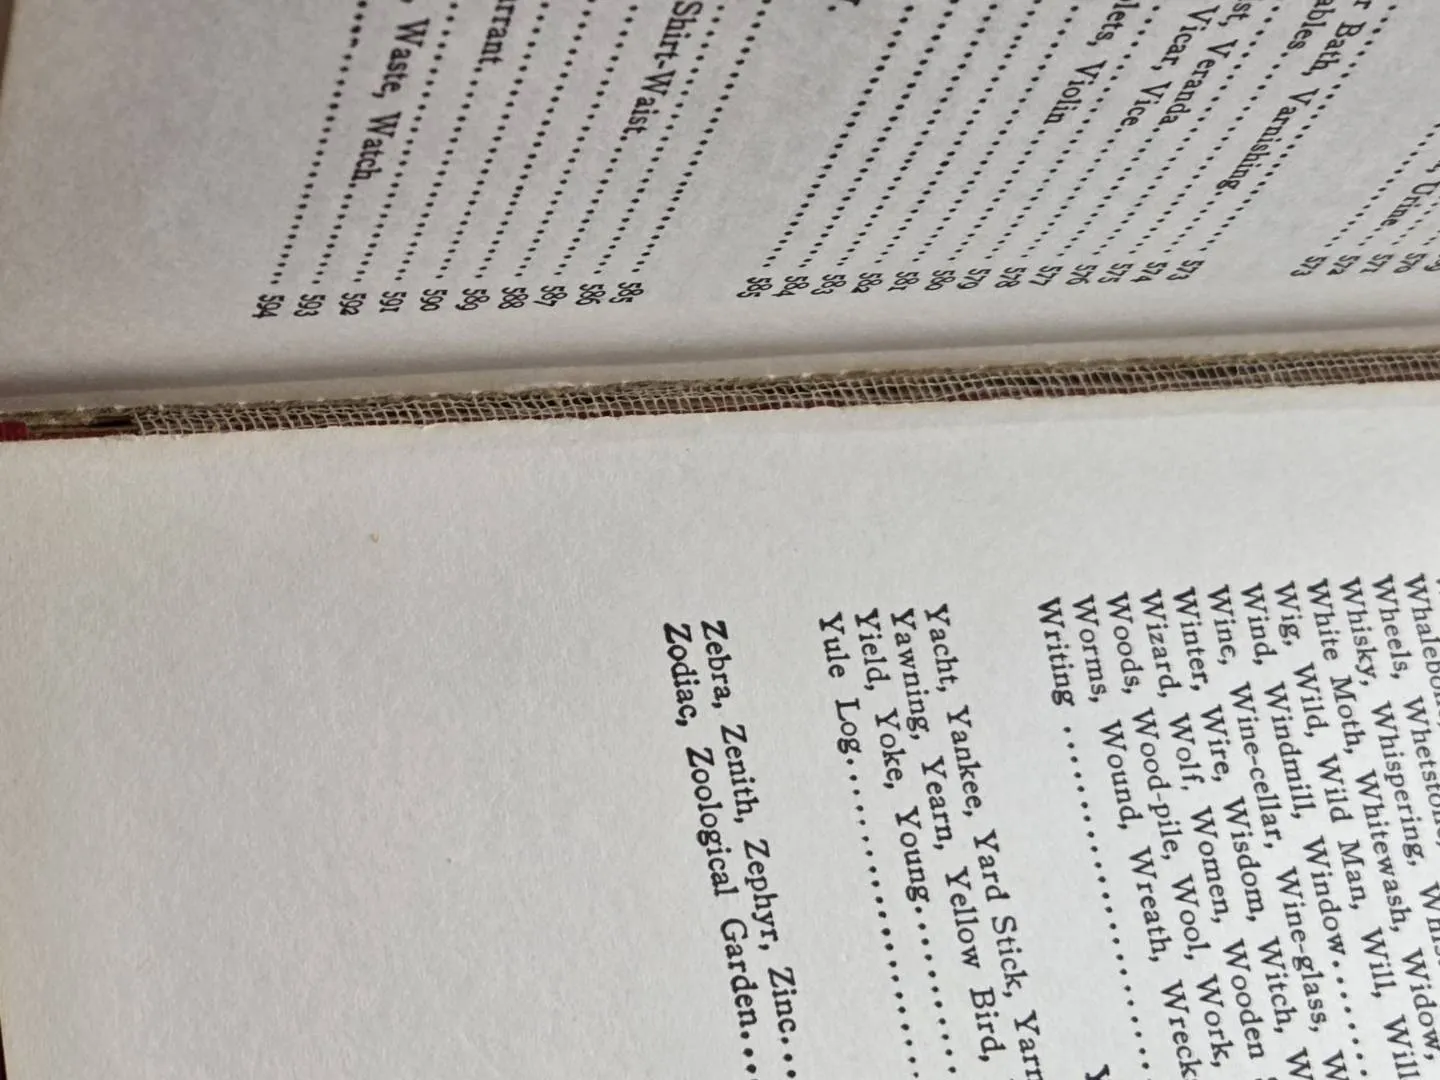 Urine
570
571
572
573
r Bath,
ables, Varnishing
st, Veranda
Vicar, Vice
lets, Violin
573
574
575
576
577
578
579
580
581
582
583
584
585
Shirt-Waist.
rrant.
Waste, Watch.
585
586
587
588
589
590
591
592
593
594
Wheels, Whetstone,
Whisky, Whispering,
White Moth, Whitewash, Widow,
Wig, Wild, Wild Man, Will, Will
Wind, Windmill, Window
Wine, Wine-cellar, Wine-glass,
Winter, Wire, Wisdom, Witch,
Wizard, Wolf, Women, Wooden
Woods, Wood-pile, Wool, Work,
Worms, Wound, Wreath, Wreck
Writing
Y
Yacht, Yankee, Yard Stick, Yarn
Yawning, Yearn, Yellow Bird,
Yield, Yoke, Young
Yule Log
Zebra, Zenith, Zephyr, Zinc
Zodiac, Zoological Garden